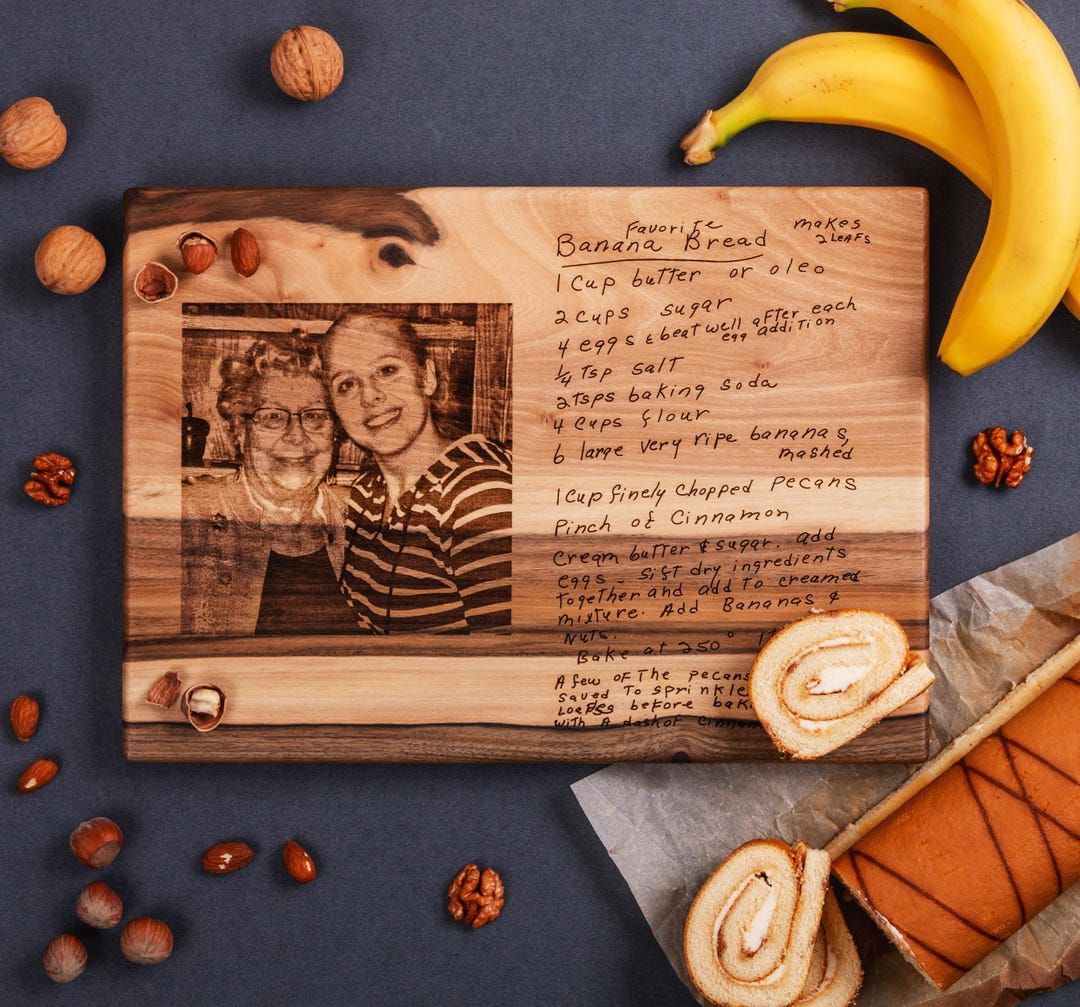 Favorite
Banana Bread
makes
2 LEAFS
1 Cup butter or oleo
2 cups sugar
4 eggs & beat well after each
egg addition
1/4 Tsp salt
2 Tsps baking soda
4 cups flour
6 large very ripe bananas,
mashed
1 Cup finely Chopped pecans
Pinch of Cinnamon
Cream butter & sugar. add
eggs - Sift dry ingredients
together and add to creamed
mixture. Add Bananas &
Nuts.
Bake at 250°
A few of The pecans
saved To sprinkle
before
With A dash of